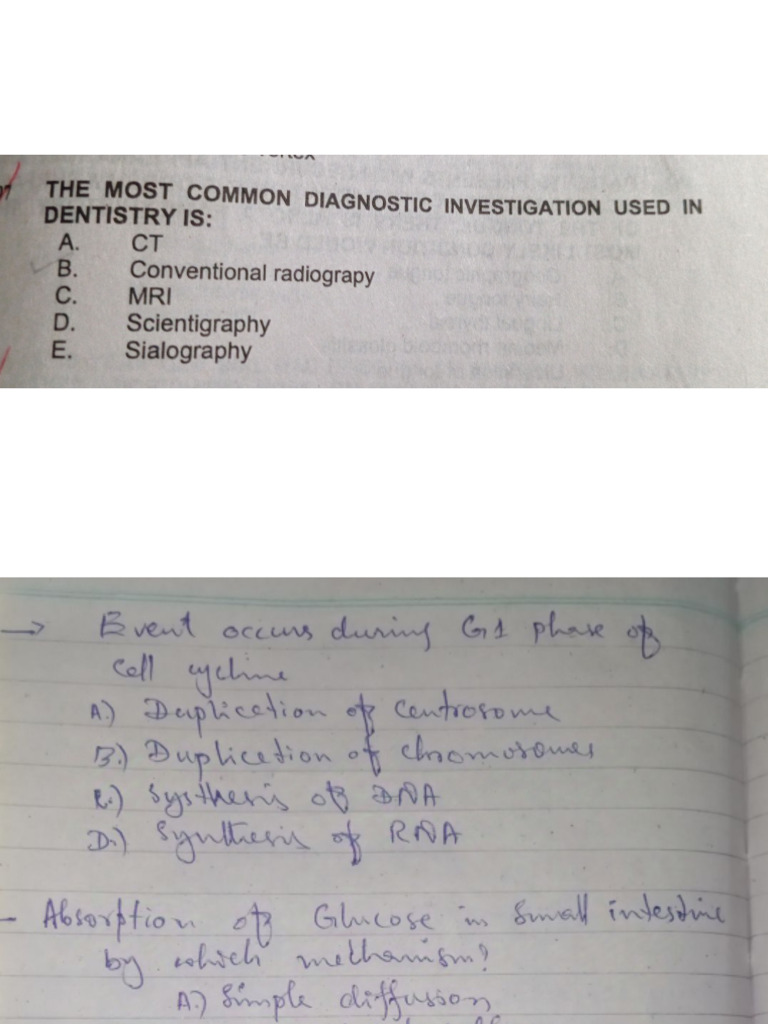 THE MOST COMMON DIAGNOSTIC INVESTIGATION USED IN
DENTISTRY IS:
A. CT
B. Conventional radiograpy
C. MRI
D. Scientigraphy
E. Sialography
→ Event occurs during G1 phase of
Cell
A.) Duplication of Centrosome
B.) Duplication of chromosomes
C.) Systhesis of DNA
D.) Synthesis of RNA
- Absorption of Glucose in Small intestine
by which methanism?
A.) Simple diffusson